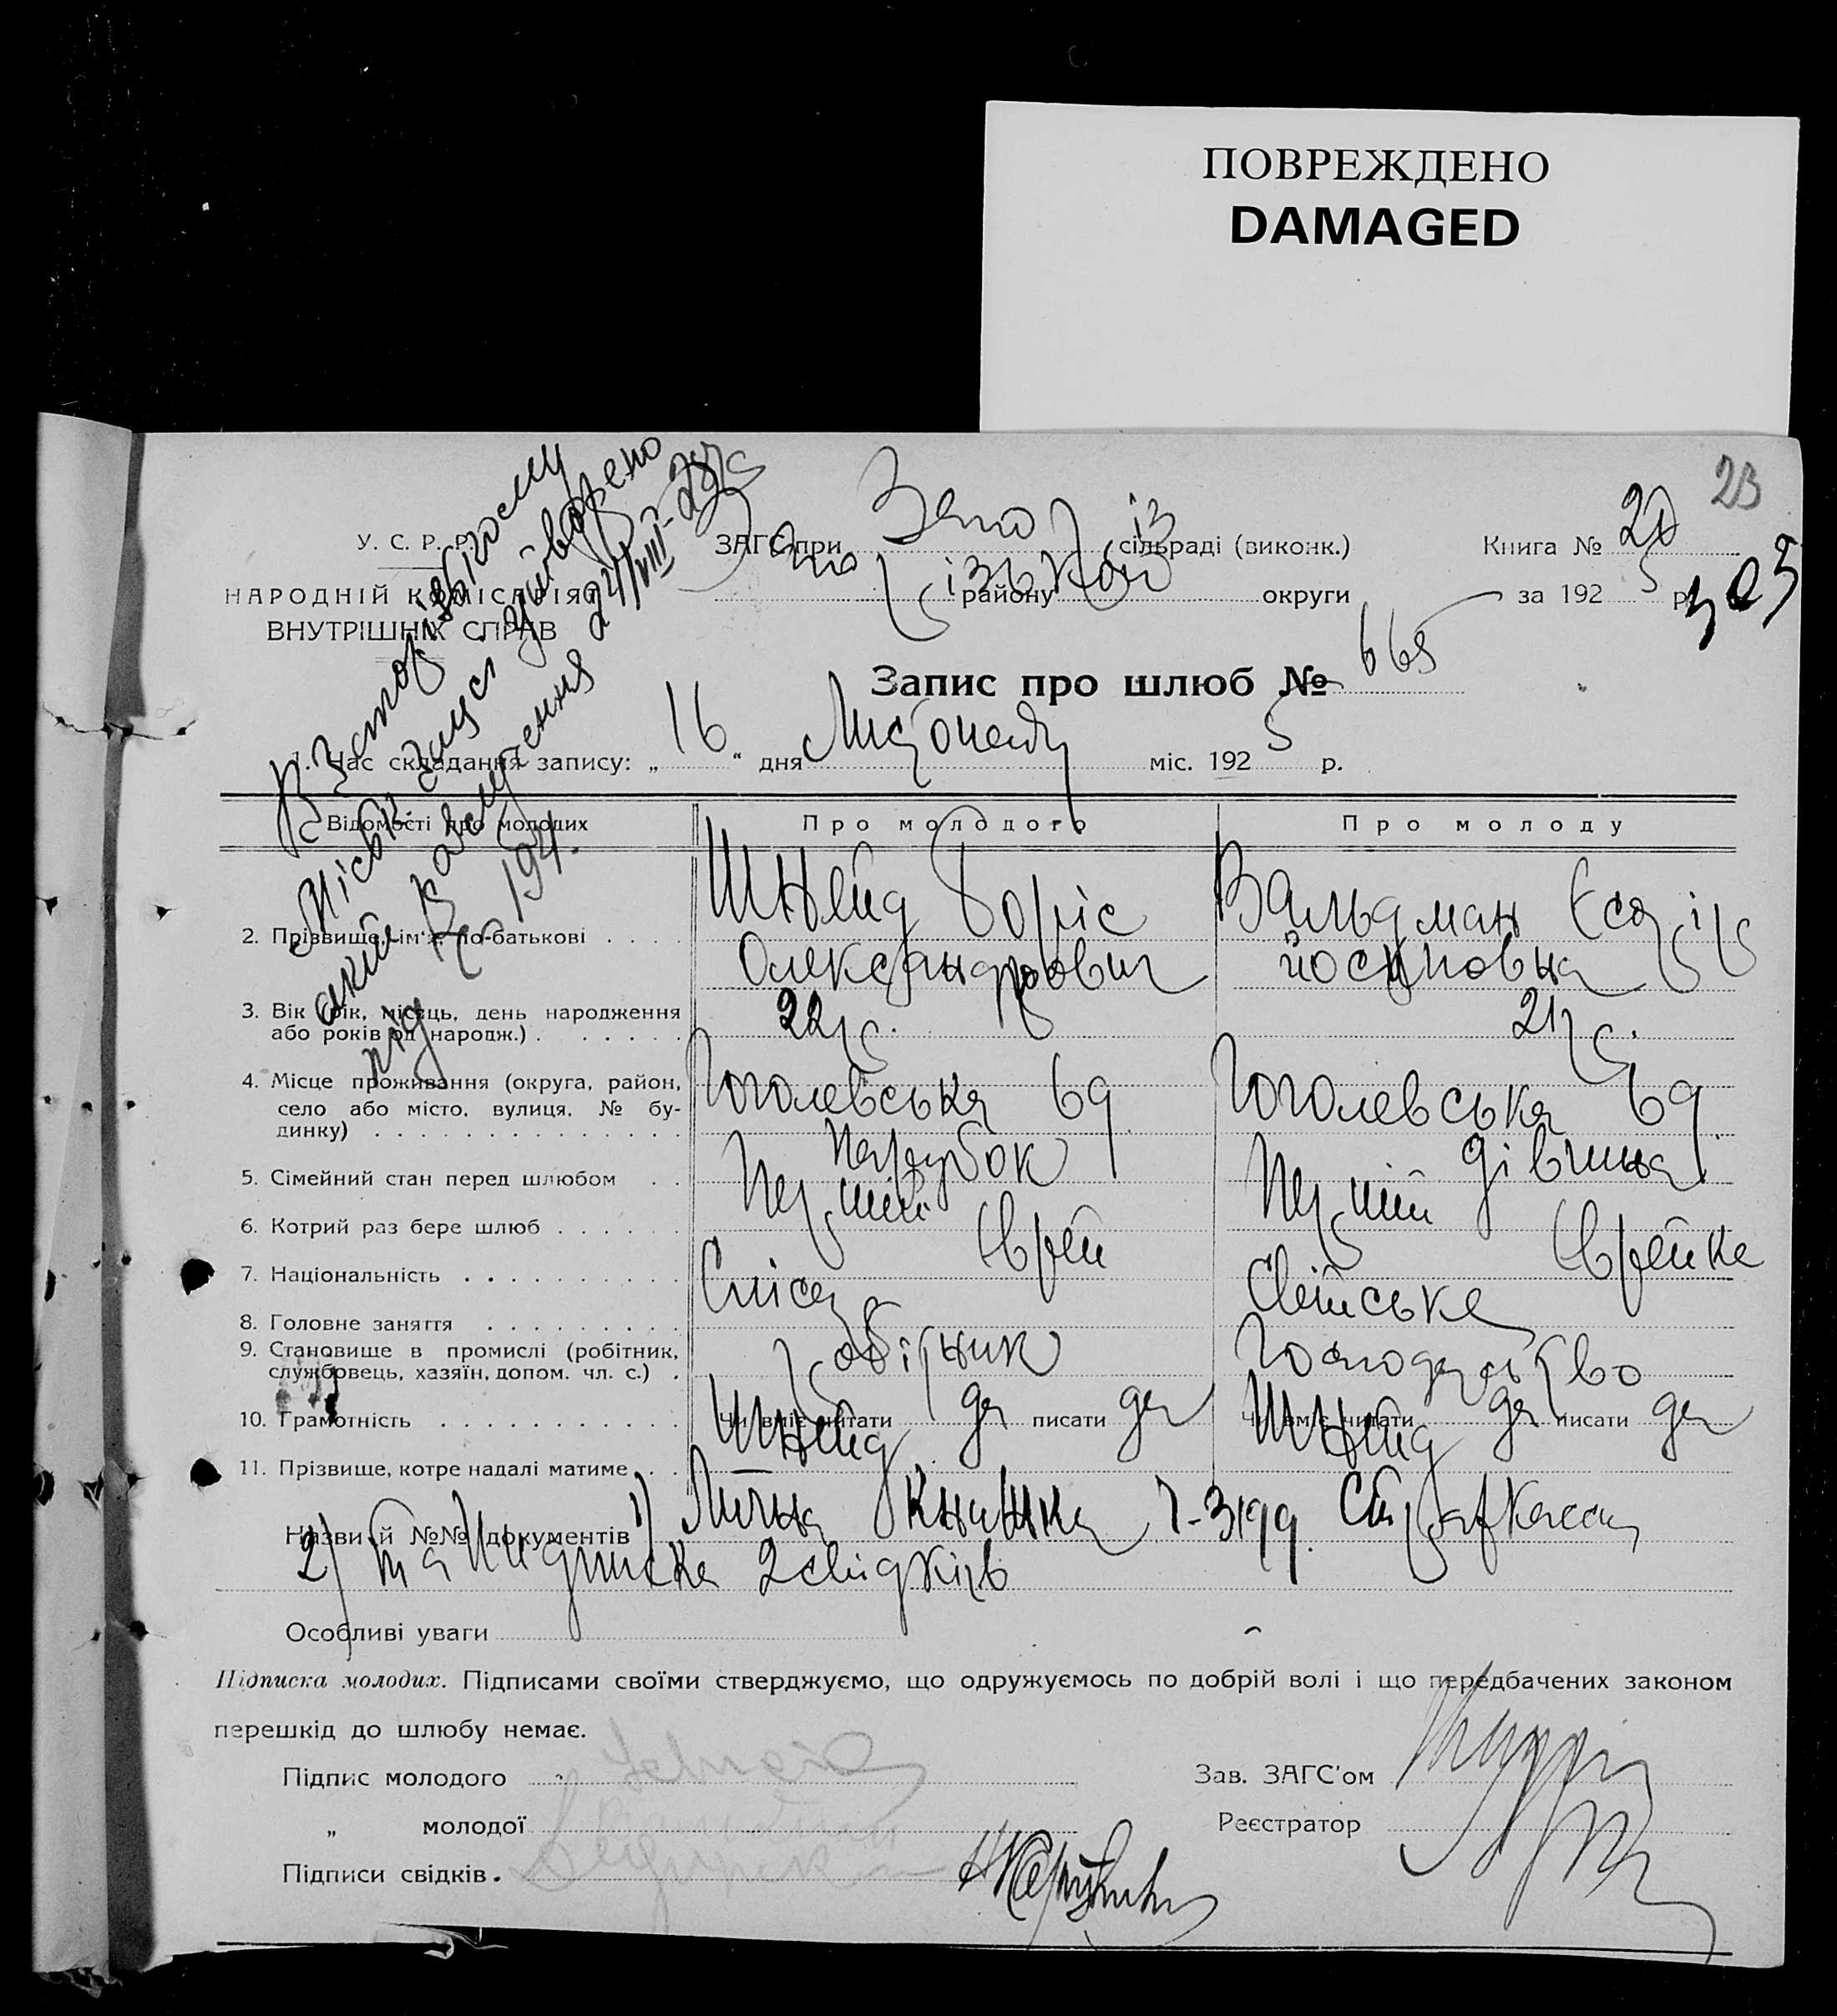 ПОВРЕЖДЕНО
DAMAGED
23
У. С. Р. Р.
НАРОДНІЙ КОМІСАРІЯТ
ВНУТРІШНІХ СПРАВ
ЗАГС при сільраді (виконк.)
району округи
Книга № 20
за 192 5 р.
305
Запис про шлюб № 665
1. Час складання запису: „ 16 “ дня Листопада міс. 192 5 р.
Відомості про молодих
Про молодого
Про молоду
2. Прізвище, ім'я, по-батькові . . . .
Шнейд Боріс
Олександрович
Вальдман
Йосиповна
3. Вік (рік, місяць, день народження
або років од народж.) . . . . . .
22 р.
21 р.
4. Місце проживання (округа, район,
село або місто, вулиця, № бу-
динку) . . . . . . . . . . . . . .
Гоголевська 69
Гоголевська 69
5. Сімейний стан перед шлюбом . .
парубок
дівчина
6. Котрий раз бере шлюб . . . . . .
Перший
Перший
7. Національність . . . . . . . . . .
Єврей
Єврейка
8. Головне заняття . . . . . . . . .
Слюсар
9. Становище в промислі (робітник,
службовець, хазяїн, допом. чл. с.) .
робітник
господарство
10. Грамотність . . . . . . . . . . .
Чи вміє читати да писати да
Чи вміє читати да писати да
11. Прізвище, котре надалі матиме . .
Шнейд
Шнейд
Назви й №№ документів 1) Лична книжка Страхкасси
2) та Підписка 2 свідків
Особливі уваги
Підписка молодих. Підписами своїми стверджуємо, що одружуємось по добрій волі і що передбачених законом
перешкід до шлюбу немає.
Підпис молодого
Зав. ЗАГС'ом
„ молодої
Реєстратор
Підписи свідків.